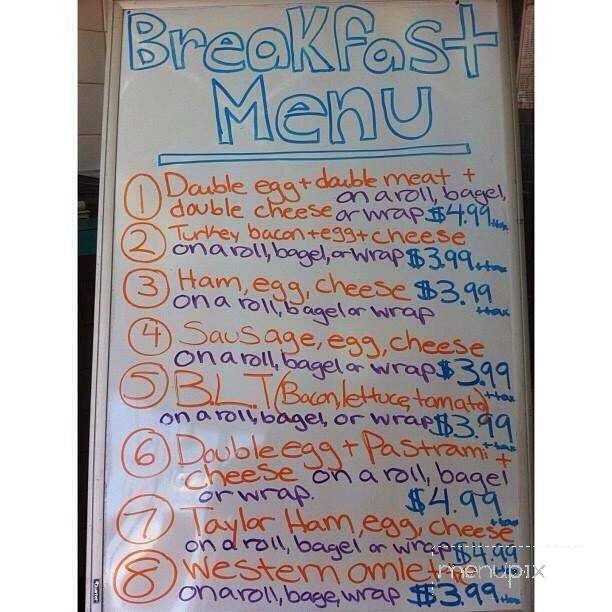 Breakfast
Menu
1 Double egg + double meat +
on a roll, bagel,
double cheese or wrap $4.99 +tax
2 Turkey bacon + egg + cheese
on a roll, bagel, or wrap $3.99 +tax
3 Ham, egg, cheese $3.99
on a roll, bagel or wrap +tax
4 Sausage, egg, cheese
on a roll, bagel or wrap $3.99
5 B.L.T (Bacon, lettuce, tomato) +tax
on a roll, bagel, or wrap $3.99
6 Double egg + Pastrami + +tax
cheese on a roll, bagel
or wrap. $4.99
7 Taylor Ham, egg, cheese +tax
on a roll, bagel or wrap $4.99
8 Western omlet
on a roll, bage, wrap $3.99
menupix